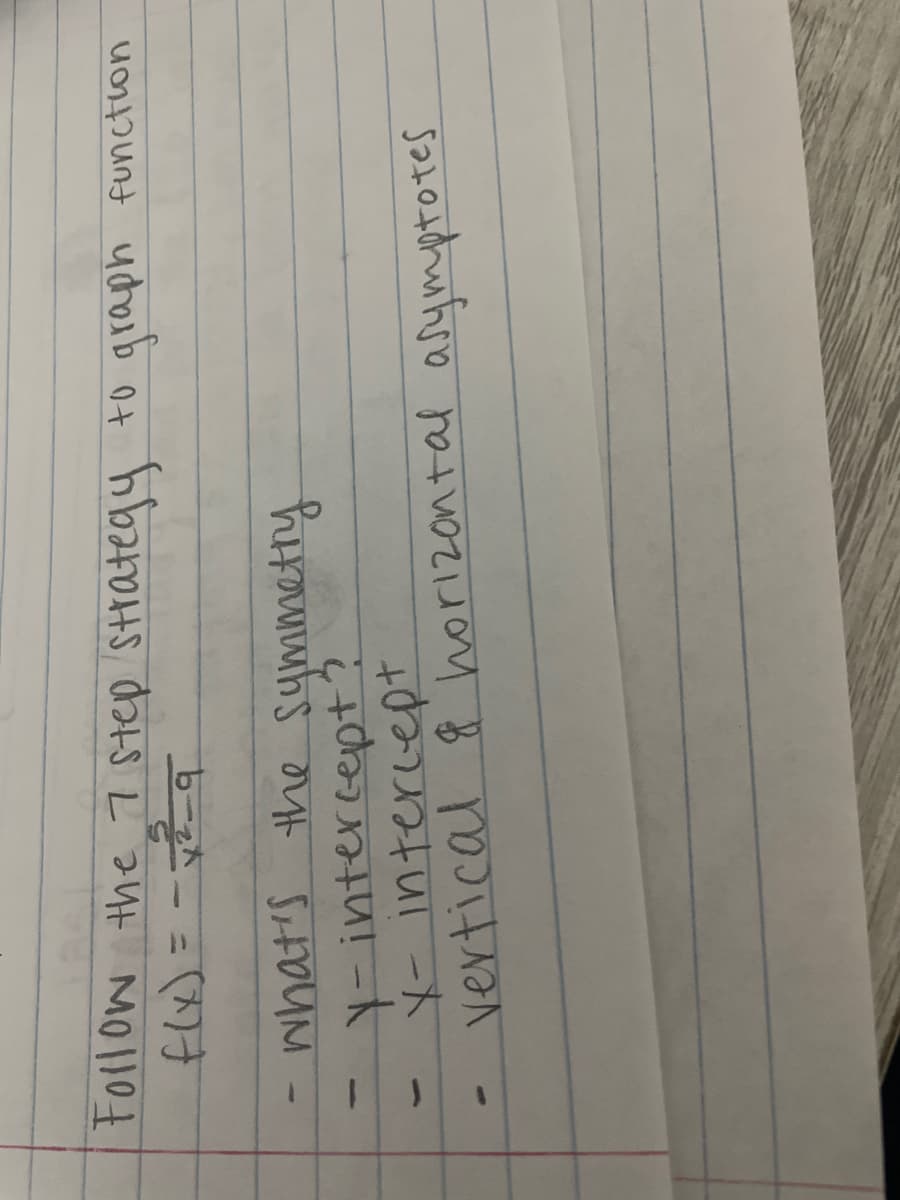 Follow the 7 step strategy to graph function
f(x) = - 5/(x²-9)
- what's the symmetry
- y-intercept?
- x- intercept
- vertical & horizontal asymptotes